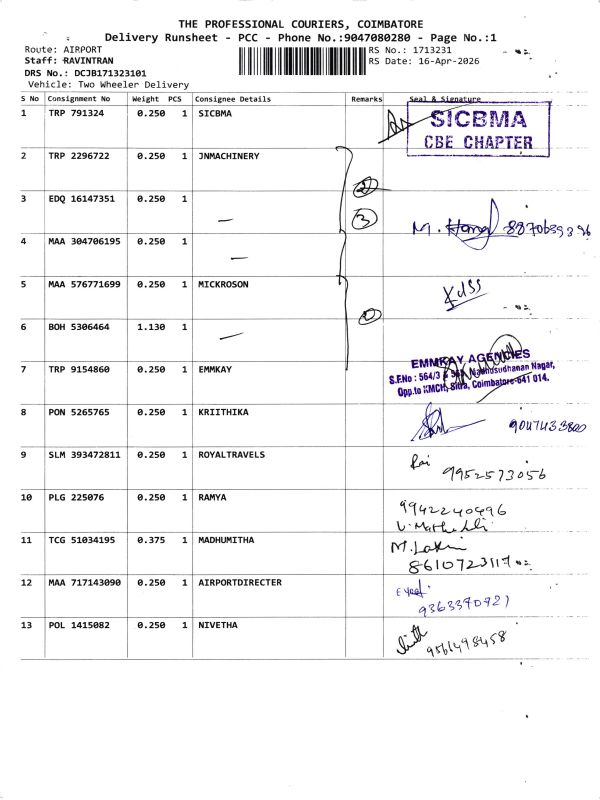 THE PROFESSIONAL COURIERS, COIMBATORE
Delivery Runsheet - PCC - Phone No.:9047080280 - Page No.:1
Route: AIRPORT RS No.: 1713231
Staff: RAVINTRAN RS Date: 16-Apr-2026
DRS No.: DCJB171323101
Vehicle: Two Wheeler Delivery
S No Consignment No Weight PCS Consignee Details Remarks Seal & Signature
1 TRP 791324 0.250 1 SICBMA
SICBMA
CBE CHAPTER
2 TRP 2296722 0.250 1 JNMACHINERY
2
3 EDQ 16147351 0.250 1 —
3
M.
4 MAA 304706195 0.250 1 —
5 MAA 576771699 0.250 1 MICKROSON
1
6 BOH 5306464 1.130 1 —
7 TRP 9154860 0.250 1 EMMKAY
EMMKAY AGENCIES
S.F.No : 564/3 Madhusudhanan Nagar,
Opp.to KMCH, Sitra, Coimbatore-641 014.
8 PON 5265765 0.250 1 KRIITHIKA
9047433800
9 SLM 393472811 0.250 1 ROYALTRAVELS
9952573056
10 PLG 225076 0.250 1 RAMYA
9942240496
11 TCG 51034195 0.375 1 MADHUMITHA
8610723117
12 MAA 717143090 0.250 1 AIRPORTDIRECTER
9363370921
13 POL 1415082 0.250 1 NIVETHA